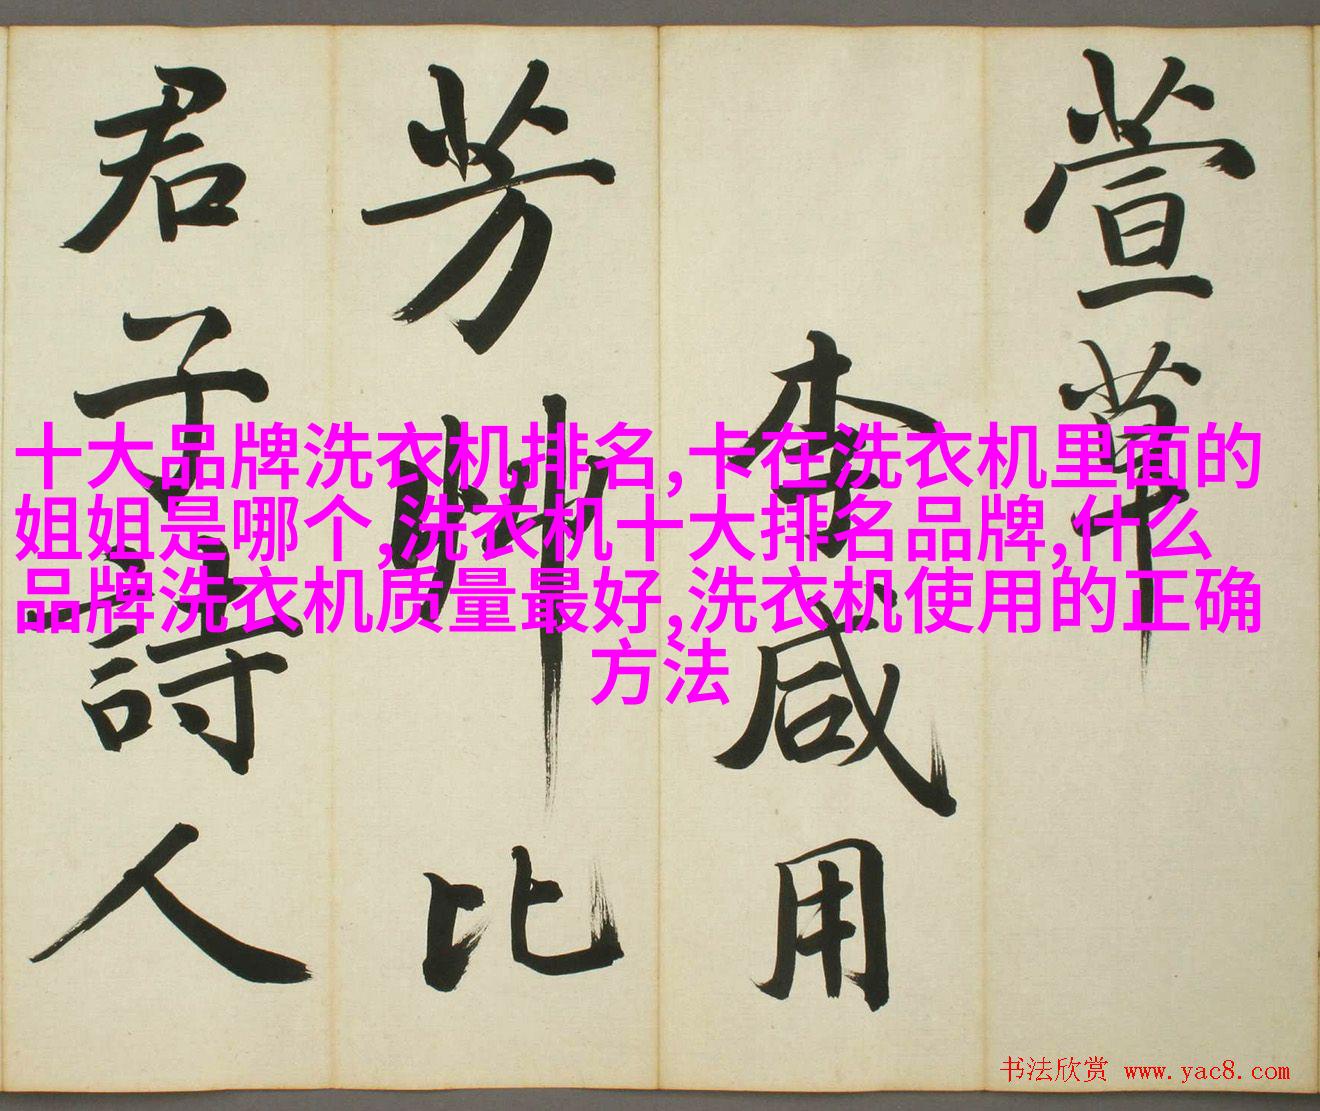 萱草
李咸用
芳艸比
君子詩人
十大品牌洗衣机排名,卡在洗衣机里面的
姐姐是哪个,洗衣机十大排名品牌,什么
品牌洗衣机质量最好,洗衣机使用的正确
方法
书法欣赏 www.yac8.com